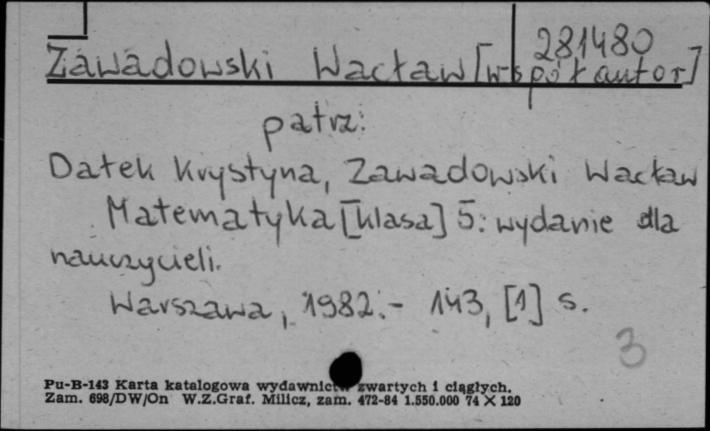 281480
Zawadowski Wacław [współautor]
patrz:
Dałek Krystyna, Zawadowski Wacław
Matematyka [klasa] 5: wydanie dla
nauczycieli.
Warszawa, 1982.- 143, [1] s.
3
Pu-B-143 Karta katalogowa wydawnictw zwartych i ciągłych.
Zam. 698/DW/On W.Z.Graf. Milicz, zam. 472-84 1.550.000 74 X 120